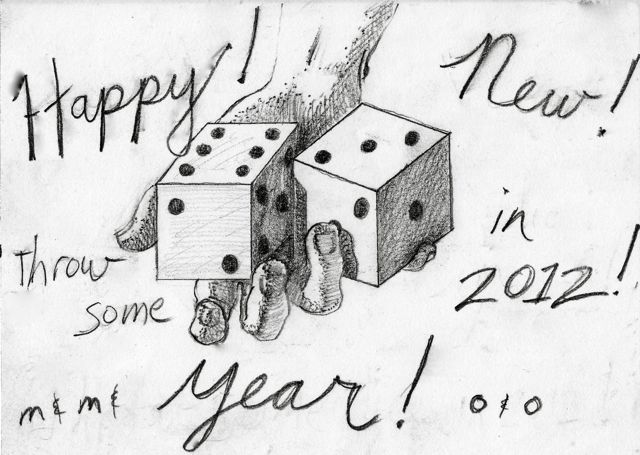 Happy!
New!
throw
some
in
2012!
m & m &
year!
o & o